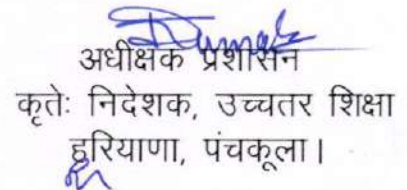 अधीक्षक प्रशासन
कृतेः निदेशक, उच्चतर शिक्षा
हरियाणा, पंचकूला।